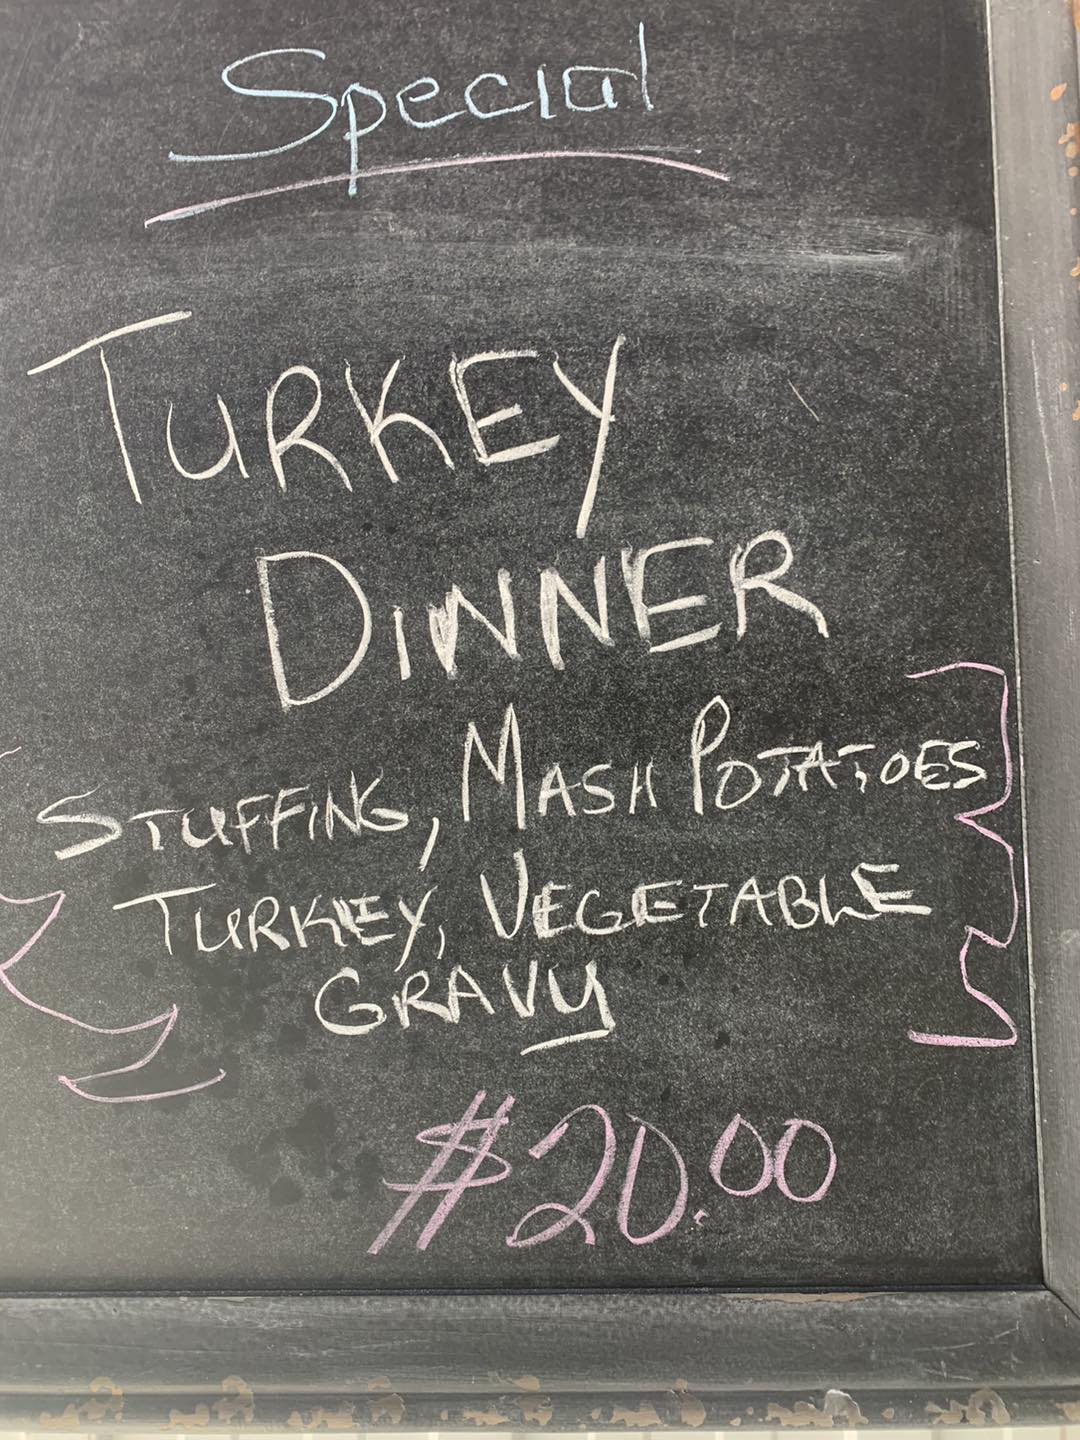 Special
TURKEY
DINNER
STUFFING, MASH POTATOES
TURKEY, VEGETABLE
GRAVY
$20.00